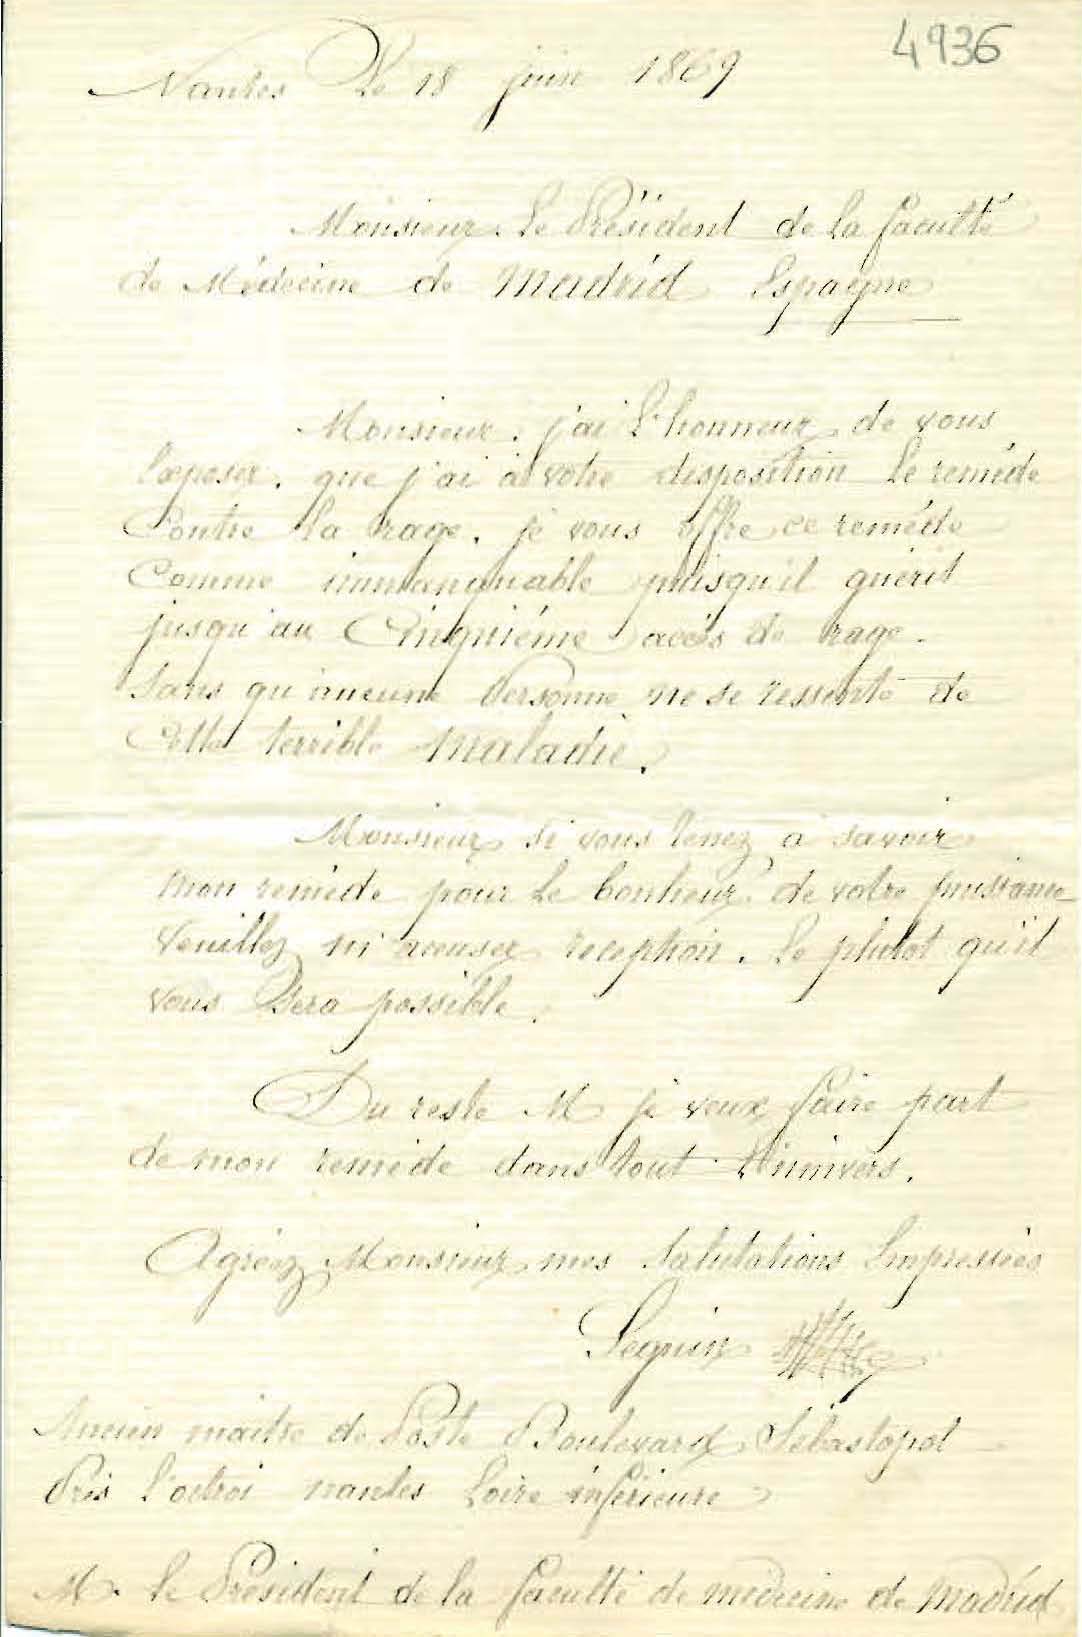 4936
Nantes Le 18 juin 1869
Monsieur. Le Président de la faculté
de Médecine de Madrid Espagne
Monsieur. j'ai L'honneur de vous
Exposer. que j'ai à votre disposition Le remède
Contre la rage. je vous offre ce remède
Comme immanquable puisqu'il guérit
jusqu'au Cinquième accès de rage.
Sans qu'aucune Personne ne se ressente de
Cette terrible Maladie.
Monsieur si vous tenez à savoir
Mon remède pour Le bonheur de votre puissance
Veuillez m'accuser reception. Le plutot qu'il
Vous Sera possible.
Du reste M je veux faire part
de mon remède dans tout L'univers.
Agréez Monsieur mes Salutations Empressées
Seguin
Ancien maitre de Poste Boulevard Sébastopol
Près L'octroi nantes Loire inférieure
M. Le Président de la faculté de medecine de Madrid